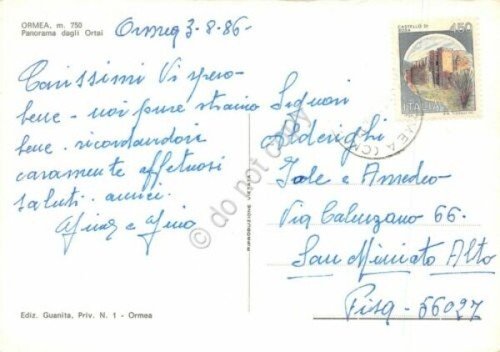 ORMEA, m. 750
Panorama dagli Ortai
Ormea 3-8-86-
Carissimi Vi spero
bene - noi pure stiamo
bene. ricordandovi
caramente affettuosi
saluti. amici.
e Gino
Signori
Alderighi
Iole e Amedeo
Via Calenzano 66-
San Miniato Alto
Pisa - 56027
CASTELLO DI
450
ITALIA
ORMEA (CN)
RIPRODUZIONE VIETATA
do not copy
Ediz. Guanita, Priv. N. 1 - Ormea